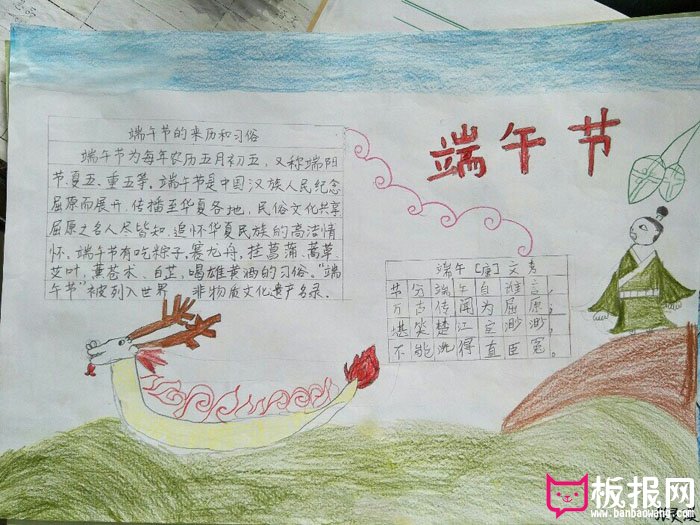 端午节
端午节的来历和习俗
端午节为每年农历五月初五，又称端阳
节、夏五、重五等。端午节是中国汉族人民纪念
屈原而展开，传播至华夏各地，民俗文化共享
屈原之名人尽皆知，追怀华夏民族的高洁情
怀。端午节有吃粽子，赛龙舟，挂菖蒲、蒿草、
艾叶，薰苍术、白芷，喝雄黄酒的习俗。“端
午节”被列入世界 非物质文化遗产名录。
端午［唐］文秀
节分端午自谁言，
万古传闻为屈原；
堪笑楚江空渺渺，
不能洗得直臣冤。
板报网
www.banbaowang.com